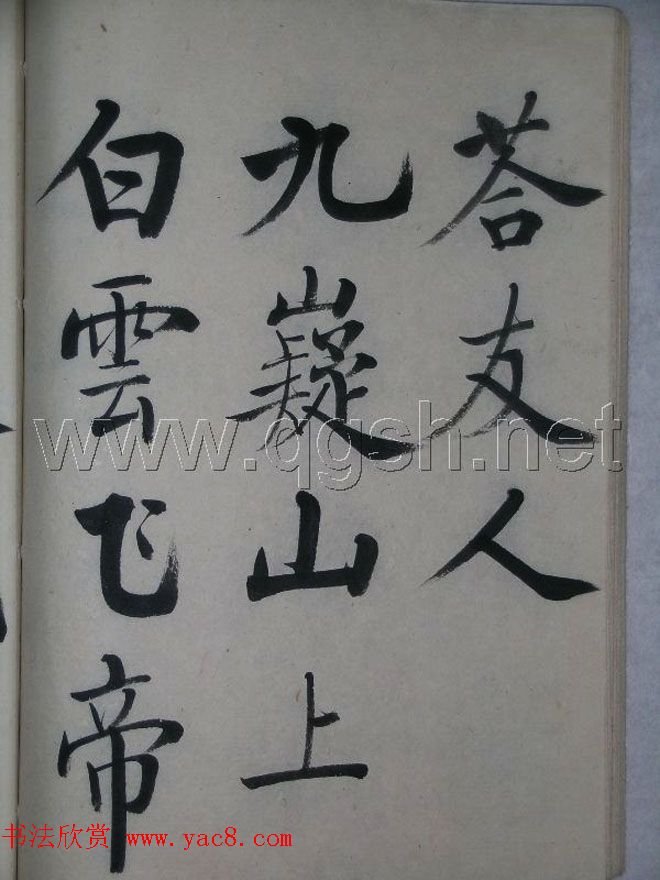 荅友人
九嶷山上
白雲飞帝
www.qgsh.net
书法欣赏 www.yac8.com